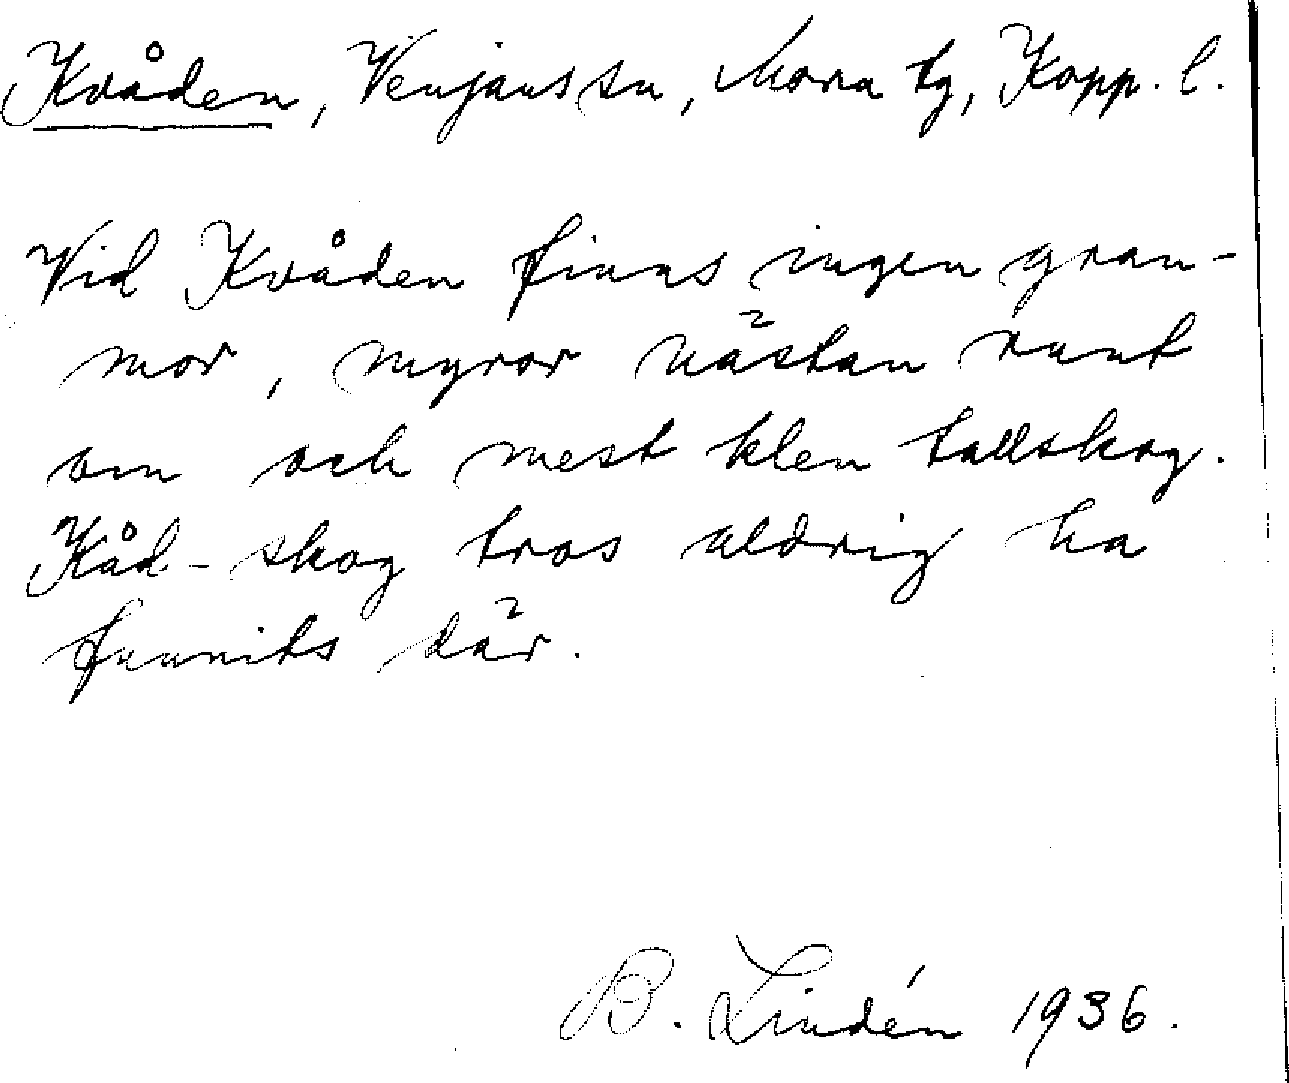 Kvåden, Venjans sn, Mora tg, Kopp. l.
Vid Kvåden finns ingen gran-
mor, myror nästan runt
om och mest klen tallskog.
Kåd-skog tros aldrig ha
funnits där.
B. Lindén 1936.